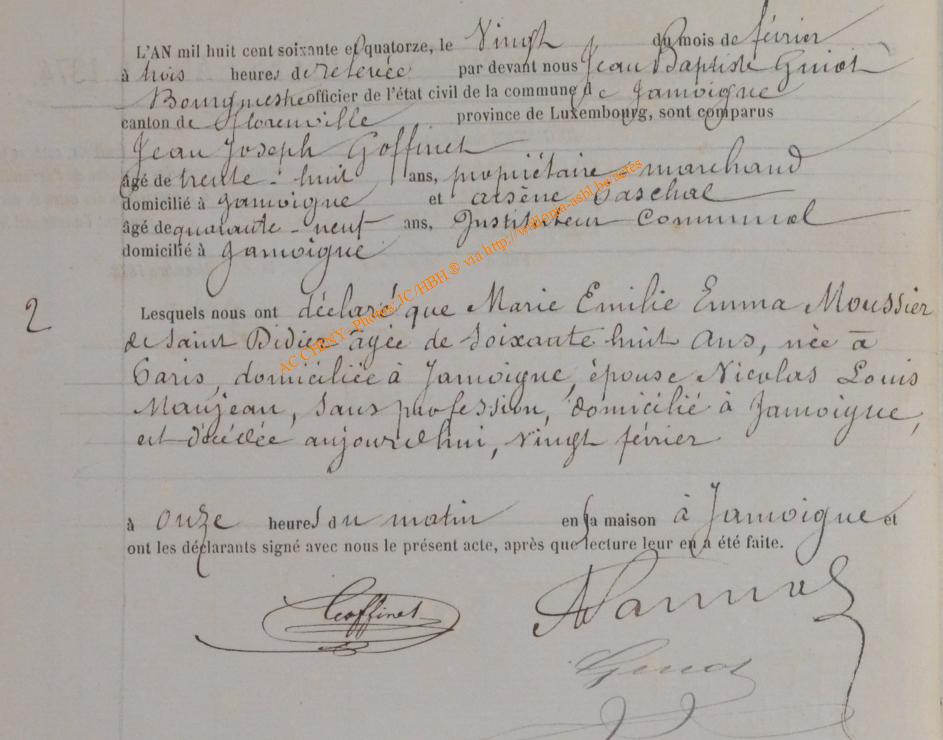 L'AN mil huit cent soixante et quatorze, le Vingt du mois de février
à trois heures de relevée par devant nous Jean Baptiste Guiot
Bourgmestre officier de l'état civil de la commune de Jamoigne
canton de Florenville province de Luxembourg, sont comparus
Jean Joseph Goffinet
âgé de trente-huit ans, propriétaire marchand
domicilié à Jamoigne et arsène Paschal
âgé de quarante-neuf ans, Instituteur Communal
domicilié à Jamoigne
2 Lesquels nous ont déclaré que Marie Emilie Emma Moussier
de Saint Didier âgée de soixante huit ans, née à
Paris, domiciliée à Jamoigne, épouse Nicolas Louis
Maujean, sans profession, domicilié à Jamoigne,
est décédée aujourd'hui, vingt février
à onze heures du matin en sa maison à Jamoigne et
ont les déclarants signé avec nous le présent acte, après que lecture leur en a été faite.
Goffinet
Guiot
AC CHINY- Photos JC/HBH ® via http://wallonia-asbl.be/sites